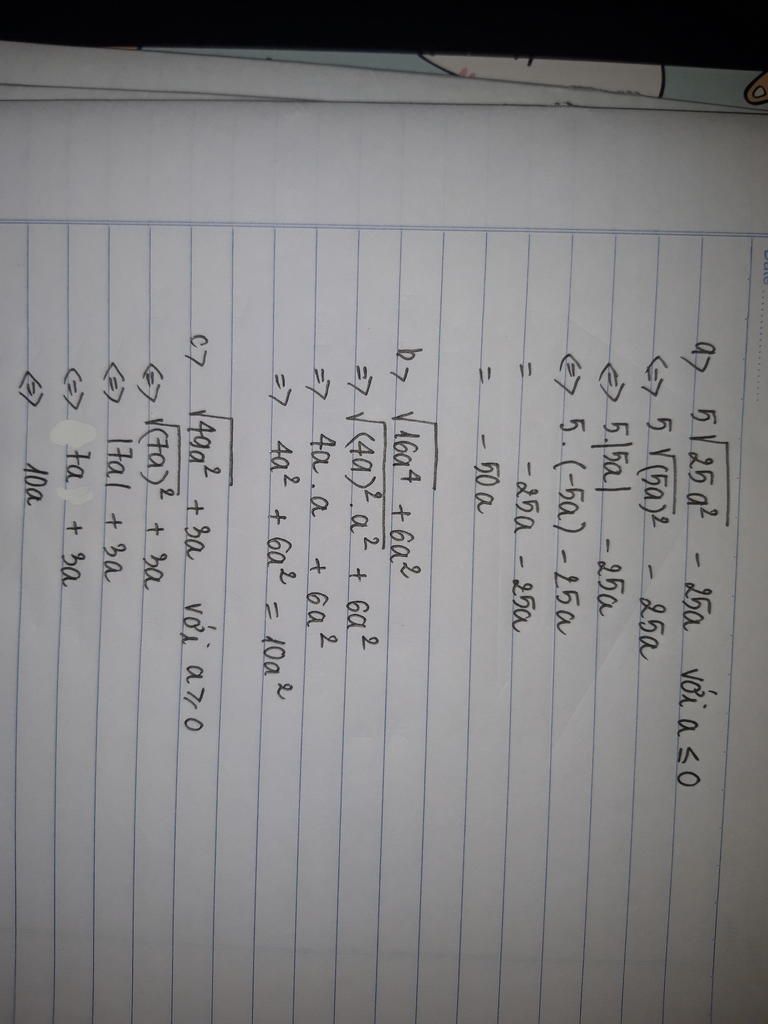 a> 5√25a² - 25a với a ≤ 0
<=> 5√(5a)² - 25a
<=> 5.|5a| - 25a
<=> 5.(-5a) - 25a
= -25a - 25a
= -50a
b> √16a⁴ + 6a²
=> √(4a)².a² + 6a²
=> 4a.a + 6a²
=> 4a² + 6a² = 10a²
c> √49a² + 3a với a ≥ 0
<=> √(7a)² + 3a
<=> |7a| + 3a
<=> 7a + 3a
<=> 10a